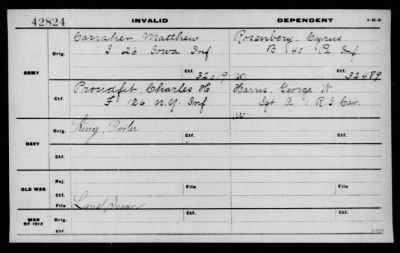 42824 INVALID DEPENDENT
ARMY
Orig. Carraher Matthew Rosenberg, Cyrus
I 26 Iowa Inf B 40 Inf
Ctf. 32019 Ctf. 32489
Ctf. Proudfit, Charles H Harris, George W.
F 126 N.Y. Inf Sgt. A 1 R.I. Cav.
NAVY
Orig. King, Porter Orig.
Ctf. Ctf.
OLD WAR
Rej.
Ctf. File File
File Isaac Ctf.
WAR OF 1812
Orig.
Ctf.